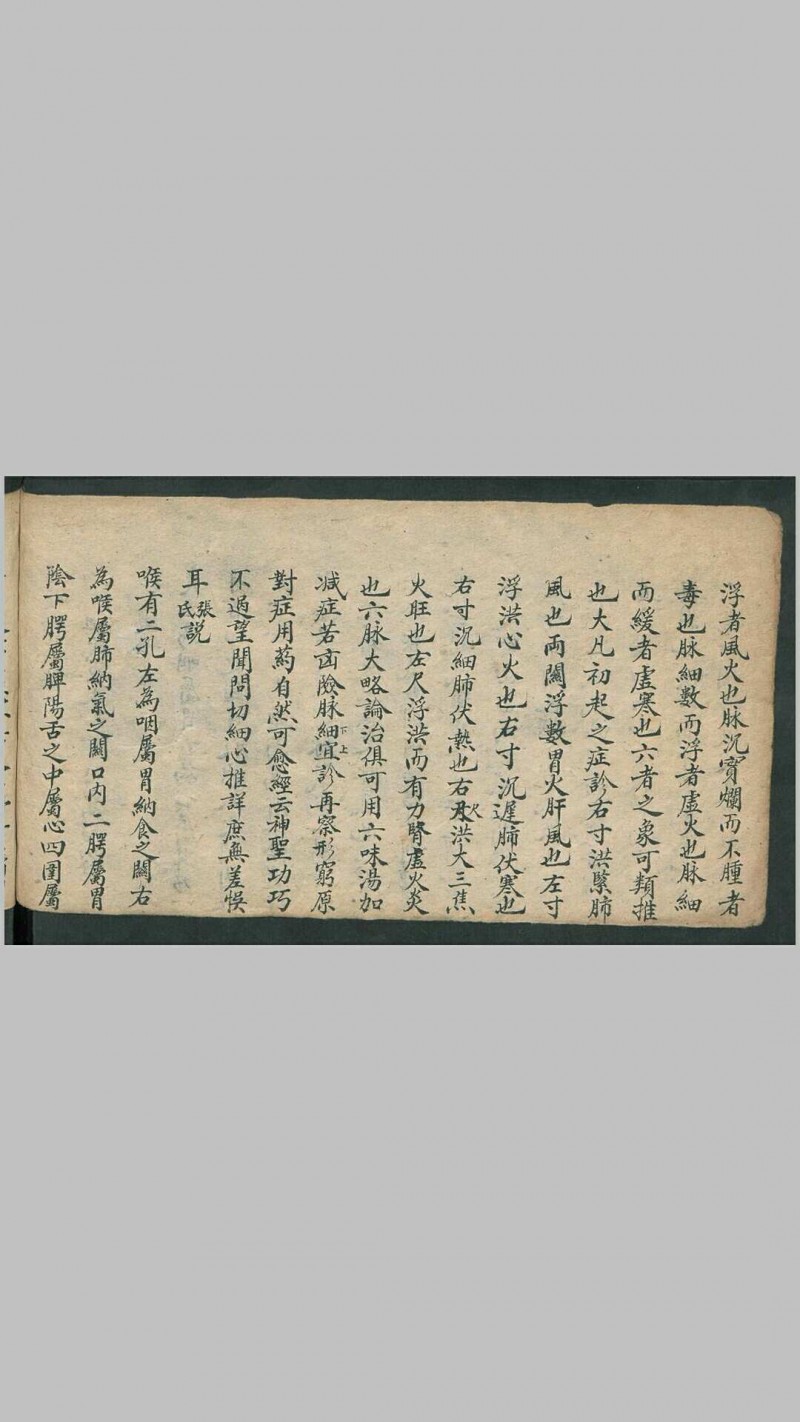 浮者風火也脉沉實爛而不腫者
毒也脉細数而浮者虛火也脉細
而緩者虛寒也六者之象可類推
也大凡初起之症診右寸洪緊肺
風也両關浮數胃火肝風也左寸
浮洪心火也右寸沉遲肺伏寒也
右寸沉細肺伏熱也右尺洪大三焦
火旺也左尺浮洪而有力腎虛火炎
也六脉大略論治俱可用六味湯加
减症若凶險脉細宜診再察形窮原
下上
對症用葯自然可愈經云神聖功巧
不過望聞問切細心推詳庶無差悞
耳張氏説
喉有二孔左為咽屬胃納食之關右
為喉屬肺納氣之關口内二腭屬胃
陰下腭屬脾陽舌之中屬心四圍屬